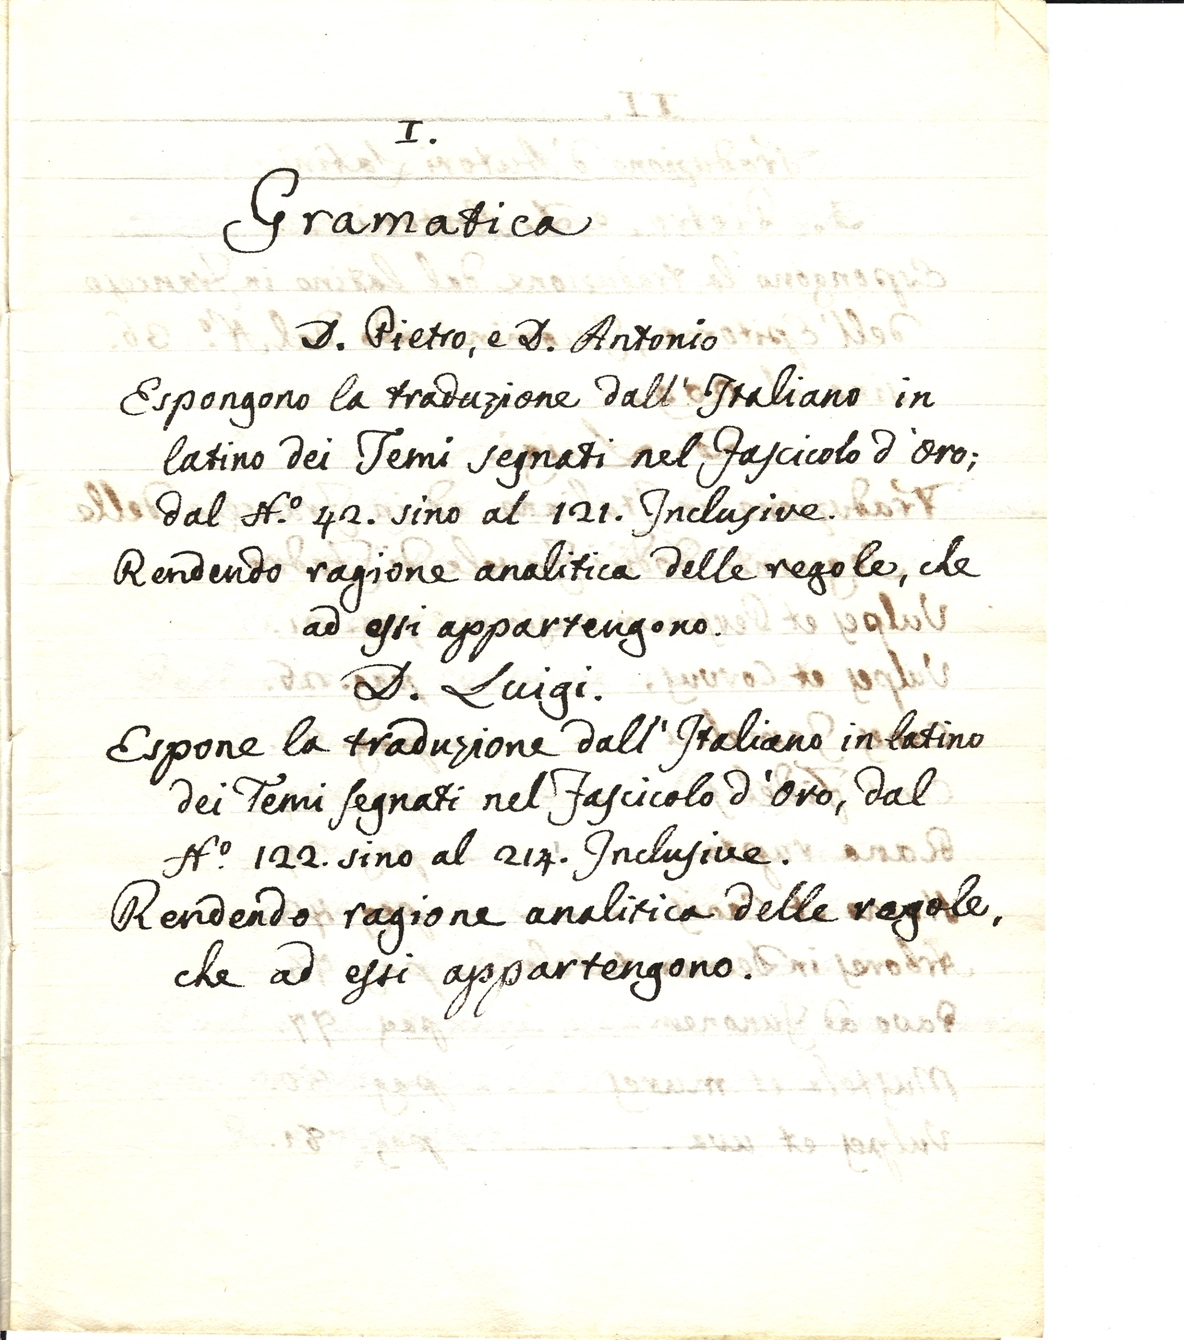 I.
Gramatica
D. Pietro, e D. Antonio
Espongono la traduzione dall' Italiano in
latino dei Temi segnati nel Fascicolo d'Oro;
dal N.º 42. sino al 121. Inclusive.
Rendendo ragione analitica delle regole, che
ad essi appartengono.
D. Luigi.
Espone la traduzione dall' Italiano in latino
dei Temi segnati nel Fascicolo d'Oro, dal
N.º 122. sino al 214. Inclusive.
Rendendo ragione analitica delle regole,
che ad essi appartengono.